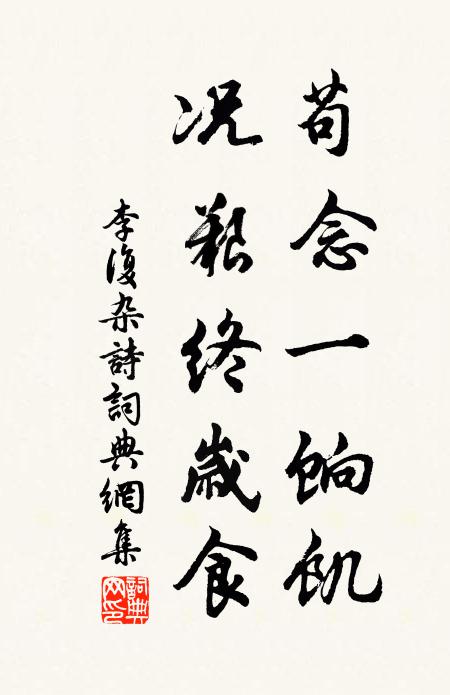 苟念一餉飢
况艱終歲食
李復杂詩詞典網集
詞典网印